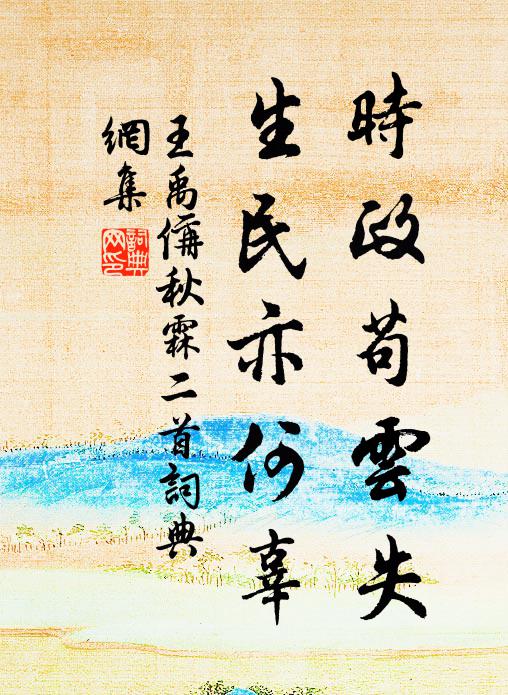 時政苟雲失
生民亦何辜
王禹偁秋霖二首詞典
網集
詞典
网印